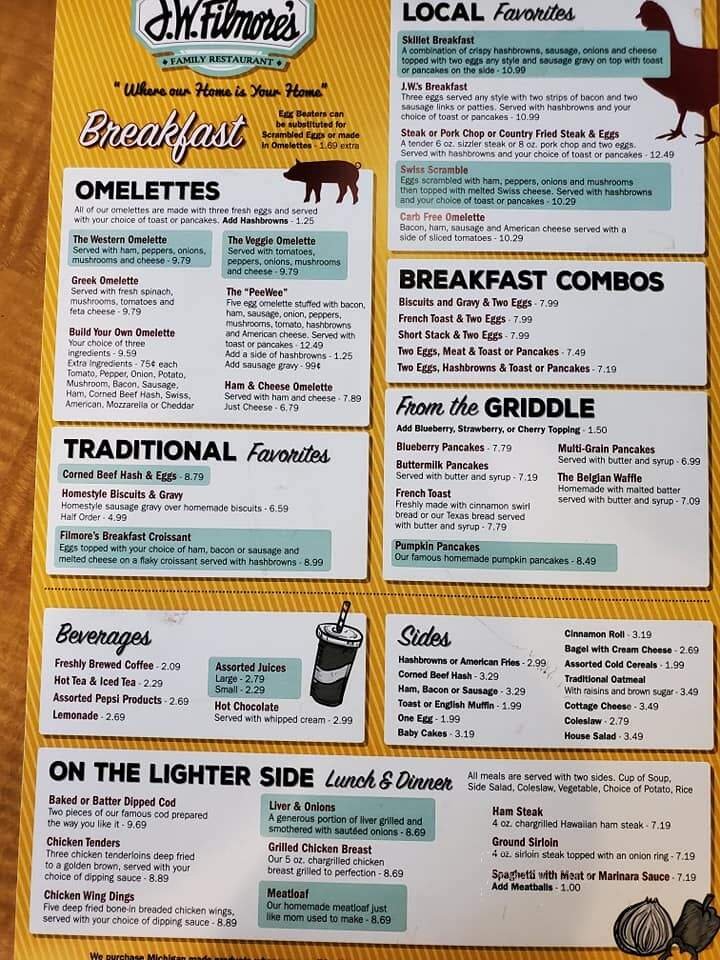 J.W. Filmore's
FAMILY RESTAURANT
"Where our Home is Your Home"
Breakfast
Egg Beaters can
be substituted for
Scrambled Eggs or made
in Omelettes - 1.69 extra
OMELETTES
All of our omelettes are made with three fresh eggs and served
with your choice of toast or pancakes. Add Hashbrowns - 1.25
The Western Omelette
Served with ham, peppers, onions,
mushrooms and cheese - 9.79
Greek Omelette
Served with fresh spinach,
mushrooms, tomatoes and
feta cheese - 9.79
Build Your Own Omelette
Your choice of three
ingredients - 9.59
Extra Ingredients - 75¢ each
Tomato, Pepper, Onion, Potato,
Mushroom, Bacon, Sausage,
Ham, Corned Beef Hash, Swiss,
American, Mozzarella or Cheddar
The Veggie Omelette
Served with tomatoes,
peppers, onions, mushrooms
and cheese - 9.79
The "PeeWee"
Five egg omelette stuffed with bacon,
ham, sausage, onion, peppers,
mushrooms, tomato, hashbrowns
and American cheese. Served with
toast or pancakes - 12.49
Add a side of hashbrowns - 1.25
Add sausage gravy - 99¢
Ham & Cheese Omelette
Served with ham and cheese - 7.89
Just Cheese - 6.79
TRADITIONAL Favorites
Corned Beef Hash & Eggs - 8.79
Homestyle Biscuits & Gravy
Homestyle sausage gravy over homemade biscuits - 6.59
Half Order - 4.99
Filmore's Breakfast Croissant
Eggs topped with your choice of ham, bacon or sausage and
melted cheese on a flaky croissant served with hashbrowns - 8.99
LOCAL Favorites
Skillet Breakfast
A combination of crispy hashbrowns, sausage, onions and cheese
topped with two eggs any style and sausage gravy on top with toast
or pancakes on the side - 10.99
J.W.'s Breakfast
Three eggs served any style with two strips of bacon and two
sausage links or patties. Served with hashbrowns and your
choice of toast or pancakes - 10.99
Steak or Pork Chop or Country Fried Steak & Eggs
A tender 6 oz. sizzler steak or 8 oz. pork chop and two eggs.
Served with hashbrowns and your choice of toast or pancakes - 12.49
Swiss Scramble
Eggs scrambled with ham, peppers, onions and mushrooms
then topped with melted Swiss cheese. Served with hashbrowns
and your choice of toast or pancakes - 10.29
Carb Free Omelette
Bacon, ham, sausage and American cheese served with a
side of sliced tomatoes - 10.29
BREAKFAST COMBOS
Biscuits and Gravy & Two Eggs - 7.99
French Toast & Two Eggs - 7.99
Short Stack & Two Eggs - 7.99
Two Eggs, Meat & Toast or Pancakes - 7.49
Two Eggs, Hashbrowns & Toast or Pancakes - 7.19
From the GRIDDLE
Add Blueberry, Strawberry, or Cherry Topping - 1.50
Blueberry Pancakes - 7.79
Buttermilk Pancakes
Served with butter and syrup - 7.19
French Toast
Freshly made with cinnamon swirl
bread or our Texas bread served
with butter and syrup - 7.79
Pumpkin Pancakes
Our famous homemade pumpkin pancakes - 8.49
Multi-Grain Pancakes
Served with butter and syrup - 6.99
The Belgian Waffle
Homemade with malted batter
served with butter and syrup - 7.09
Beverages
Freshly Brewed Coffee - 2.09
Hot Tea & Iced Tea - 2.29
Assorted Pepsi Products - 2.69
Lemonade - 2.69
Assorted Juices
Large - 2.79
Small - 2.29
Hot Chocolate
Served with whipped cream - 2.99
Sides
Hashbrowns or American Fries - 2.99
Corned Beef Hash - 3.29
Ham, Bacon or Sausage - 3.29
Toast or English Muffin - 1.99
One Egg - 1.99
Baby Cakes - 3.19
Cinnamon Roll - 3.19
Bagel with Cream Cheese - 2.69
Assorted Cold Cereals - 1.99
Traditional Oatmeal
With raisins and brown sugar - 3.49
Cottage Cheese - 3.49
Coleslaw - 2.79
House Salad - 3.49
ON THE LIGHTER SIDE Lunch & Dinner
All meals are served with two sides. Cup of Soup,
Side Salad, Coleslaw, Vegetable, Choice of Potato, Rice
Baked or Batter Dipped Cod
Two pieces of our famous cod prepared
the way you like it - 9.69
Chicken Tenders
Three chicken tenderloins deep fried
to a golden brown, served with your
choice of dipping sauce - 8.89
Chicken Wing Dings
Five deep fried bone-in breaded chicken wings,
served with your choice of dipping sauce - 8.89
Liver & Onions
A generous portion of liver grilled and
smothered with sautéed onions - 8.69
Grilled Chicken Breast
Our 5 oz. chargrilled chicken
breast grilled to perfection - 8.69
Meatloaf
Our homemade meatloaf just
like mom used to make - 8.69
Ham Steak
4 oz. chargrilled Hawaiian ham steak - 7.19
Ground Sirloin
4 oz. sirloin steak topped with an onion ring - 7.19
Spaghetti with Meat or Marinara Sauce - 7.19
Add Meatballs - 1.00
We purchase Michigan made products